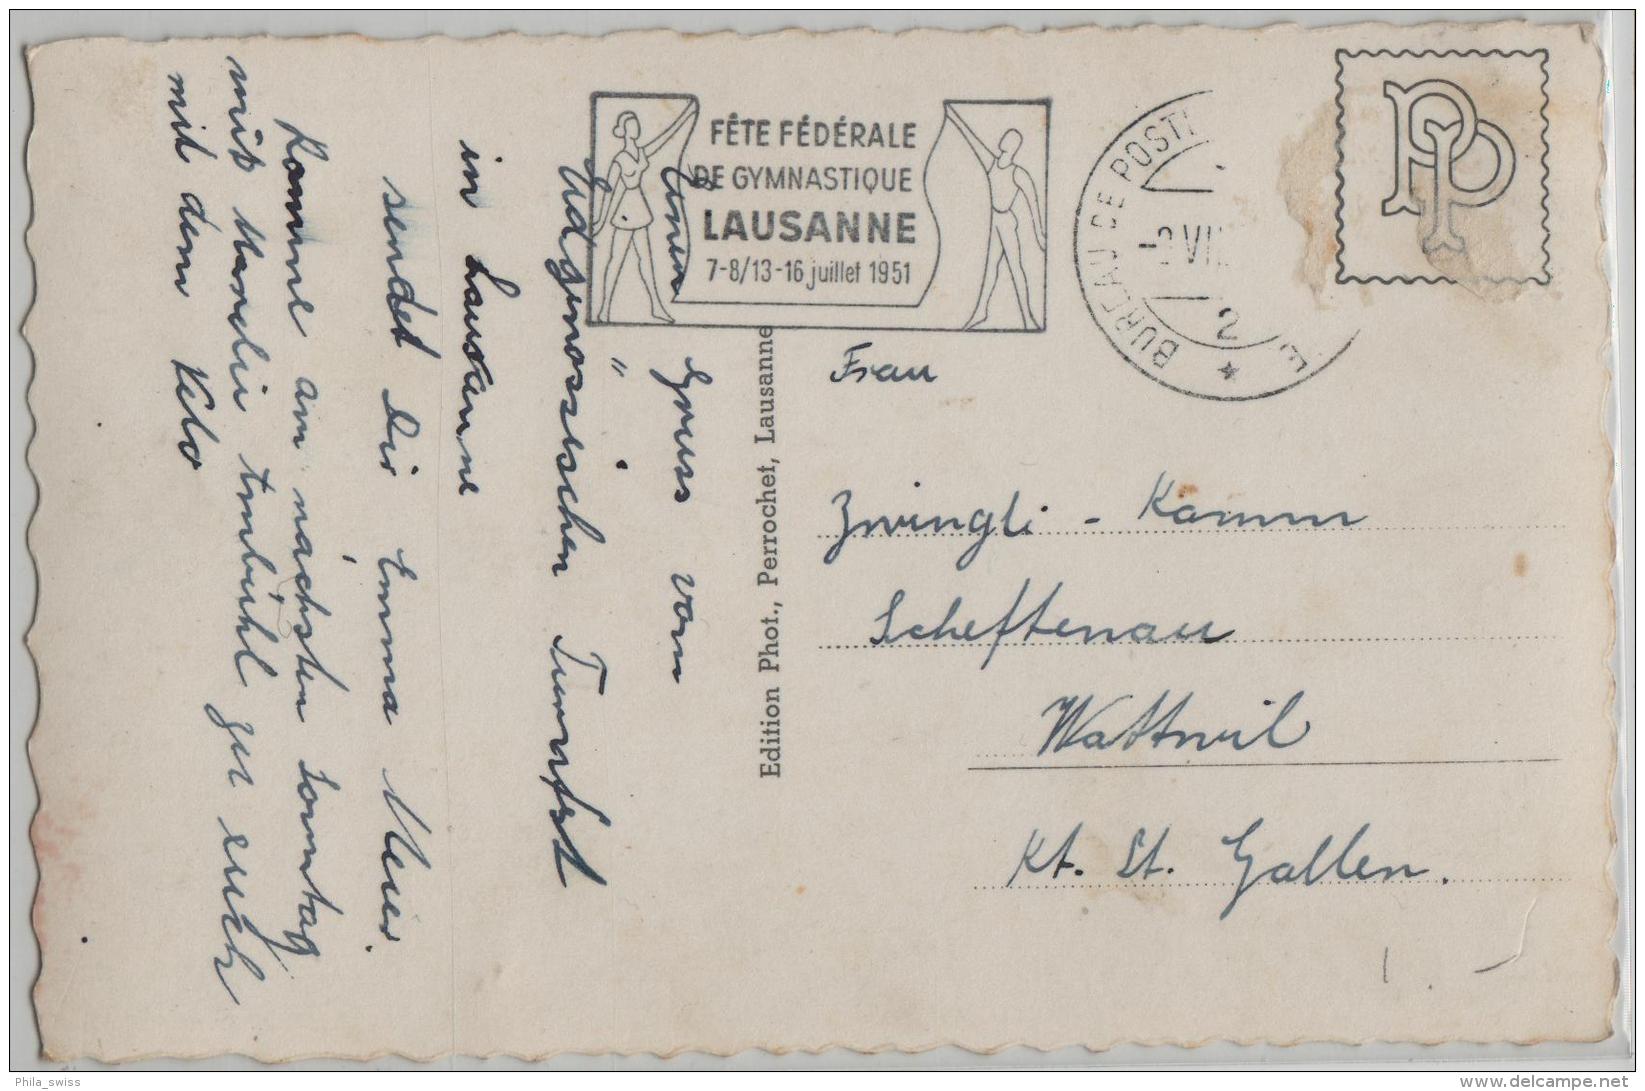 FÊTE FÉDÉRALE
DE GYMNASTIQUE
LAUSANNE
7-8/13-16 juillet 1951
BUREAU DE POSTE
VII
2
PP
Einen Gruss vom
Eidgenössischen Turnfest
in Lausanne
sendet Dir Emma Meier.
Komme am nächsten Sonntag
mit
zu euch
mit dem Velo
Edition Phot., Perrochet, Lausanne
Frau
Zwingli - Kamm
Scheftenau
Wattwil
Kt. St. Gallen.
Phila_swiss
www.delcampe.net